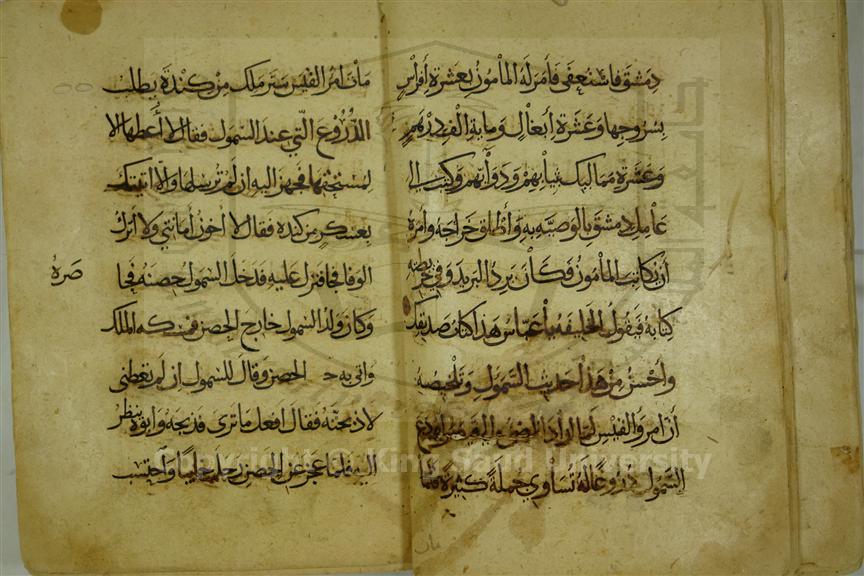 دمشق فاستعفى فأمر له المأمون بعشرة أفراس
بسروجها وعشرة ابغال وماية الف درهم
وعشرة مماليك بثيابهم ودوابهم وكتب الى
عامل دمشق بالوصية به وأطلق خراجه وأمره
أن يكاتب المأمون فكان يرد البريد وفي خريطته
كتابه فيقول الخليفه يا عباس هذا كتاب صديقك
وأحسن من هذا حديث السموأل وتلخيصه
أن امرؤ القيس لما اراد المضي الى قيصر اودع
السموأل دروعا له تساوي جملة كثيرة فلما
مات امرؤ القيس سير ملك من كندة يطلب
الدروع التي عند السموأل فقال لا أعطيها الا
لمستحقها فجهز اليه ان لم ترسلها والا اتيتك
بعسكر من كنده فقال لا أخون أمانتي ولا أترك
الوفا فجا فنزل عليه فدخل السموأل حصنه فجا
صره
وكان ولد السموأل خارج الحصن الملك
واتى به الحصن وقال للسموأل ان لم تعطني
لاذبحنه فقال افعل ما ترى فذبحه وابوه ينظر
اليه فلما عجز عن الحصن رحل خايبا واحتسب
مات
Copyright © King Saud University